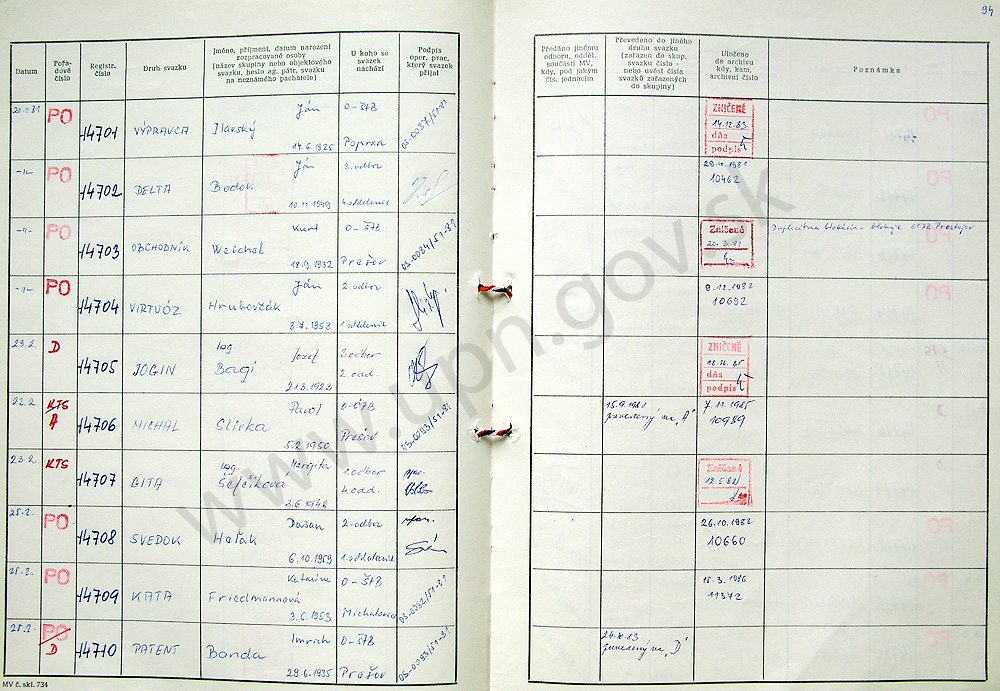 94
Datum
Pořa-
dové
číslo
Registr.
číslo
Druh svazku
Jméno, příjmení, datum narození
rozpracované osoby
(název skupiny nebo objektového
svazku, heslo ag. pátr. svazku
na neznámého pachatele)
U koho se
svazek
nachází
Podpis
oper. prac.
který svazek
přijal
Předáno jinému
odboru, odděl.
součásti MV,
kdy, pod jakým
čís. jednacím
Převedeno do jiného
druhu svazku
(zařazen do skup.
svazku číslo -
nebo uvést čísla
svazků zařazených
do skupiny)
Uloženo
do archivu
kdy, kam,
archivní číslo
Poznámka
PO 14701 VÝPRAVCA Ján Ilavský 14.6.1925 O-ŠTB Poprad OS-0087/51-81
ZNIČENÉ
14.12.83
dňa
podpis
-"- PO 14702 DELTA Ján Bodok 10.11.1949 3.odbor 4.oddelenie
29.4.1981
10462
-"- PO 14703 OBCHODNÍK Kurt Weichel 18.9.1932 O-ŠTB Prešov OS-0084/51-81
Zničené
20.3.81
-"- PO 14704 VIRTUÓZ Ján Hrubovčák 3.7.1958 2.odbor 1.oddelenie
9.12.1982
10692
23.2. D 14705 JOGIN Ing. Jozef Bagi 21.3.1923 3.odbor 2.odd.
ZNIČENÉ
dňa
podpis
23.2. KTS A 14706 MICHAL Pavol Slivka 5.2.1950 O-ŠTB Prešov OS-0093/51-81
15.9.1981
zmenený na „A"
7.11.1985
10989
23.2. KTS 14707 GITA Ing. Margita Šefčíková 3.6.1948 1.odbor 4.odd.
Zničené
12.5.82
25.2. PO 14708 SVEDOK Dušan Haľák 6.10.1959 2.odbor 1.oddelenie
26.10.1982
10660
25.2. PO 14709 KATA Katarína Friedmannová 3.6.1953 O-ŠTB Michalovce OS-0092/51-81
11372
25.2. PO D 14710 PATENT Imrich Banda 29.6.1935 O-ŠTB Prešov OS-0093/51-81
zmenený na „D"
MV č. skl. 734
www.upn.gov.sk